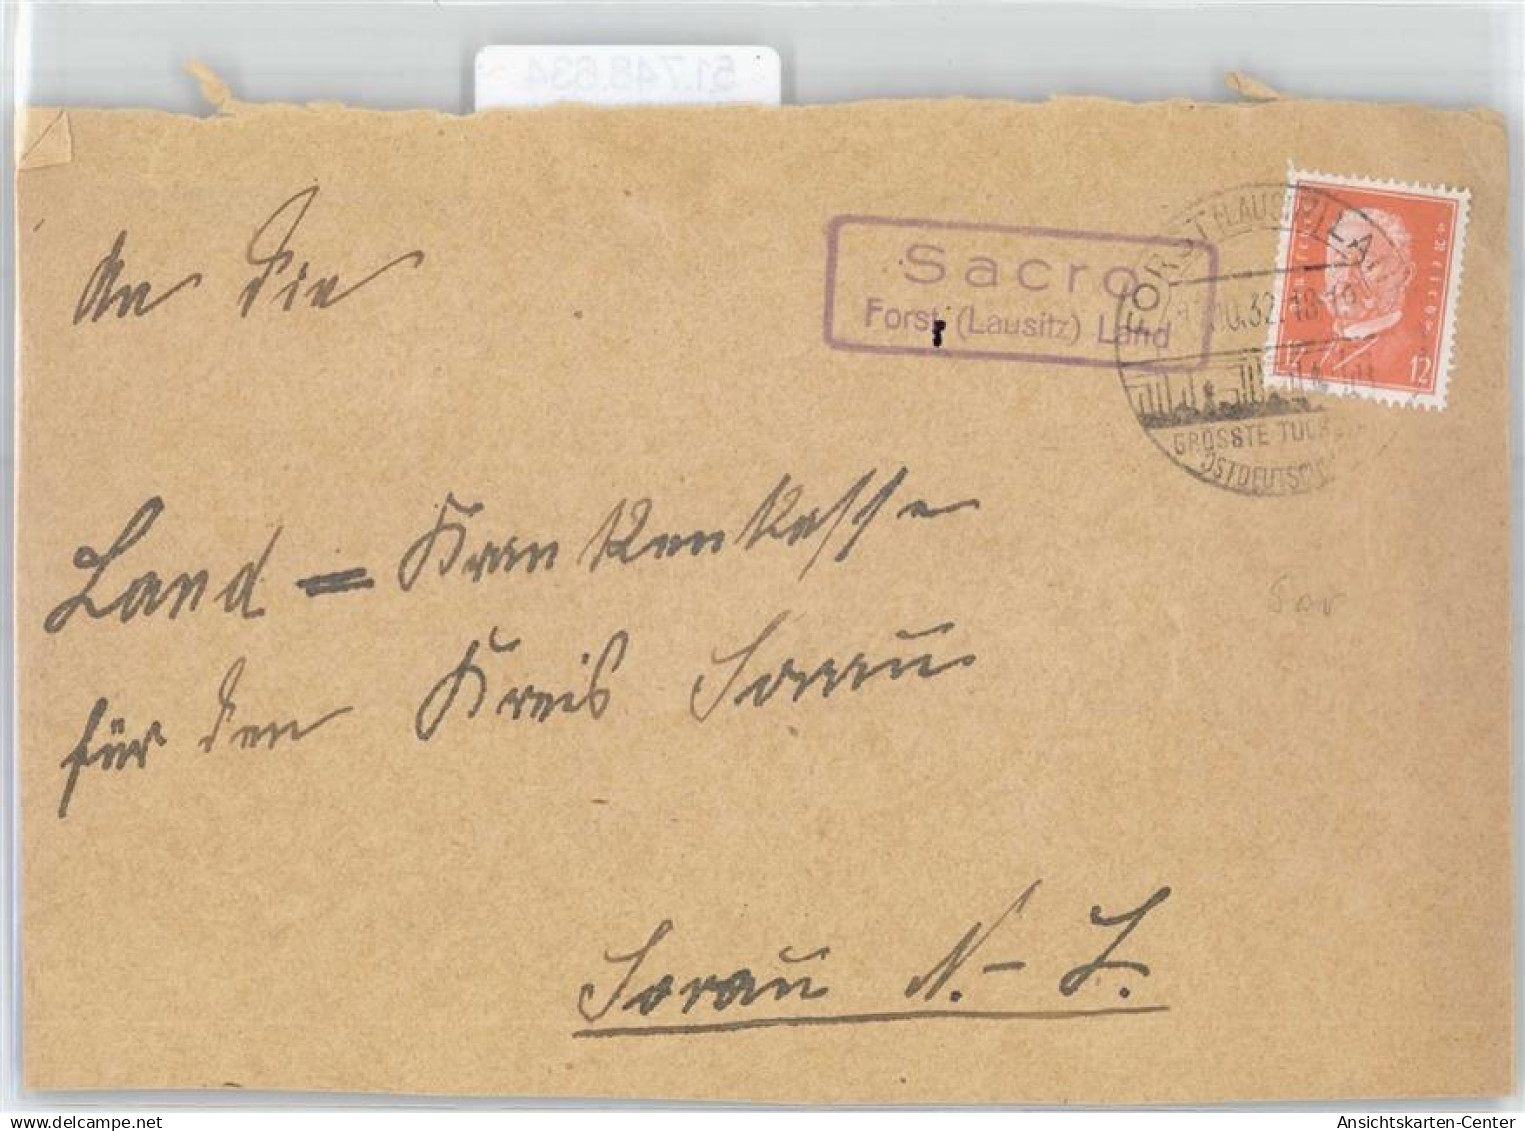 51.748.634
Sacro
Forst (Lausitz) Land
FORST (LAUSITZ)
10.32. 18-19
GRÖSSTE
12 12
An die
Land = Krankenkasse
für den Kreis Sorau
Sor
Sorau N.-L.
delcampe.net
Ansichtskarten-Center